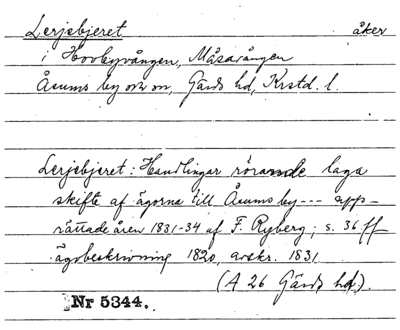 Lerjebjeret åker
i Hovbyvången, Måsavången
Åsums by och sn, Gärds hd, Krstd. l.
Lerjebjeret: Handlingar rörande laga
skifte af ägorna till Åsums by --- upp-
rättade åren 1831-34 af F. Ryberg; s. 36 ff
ägobeskrivning 1820, avskr. 1831.
(A 26 Gärds hd.).
Nr 5344.